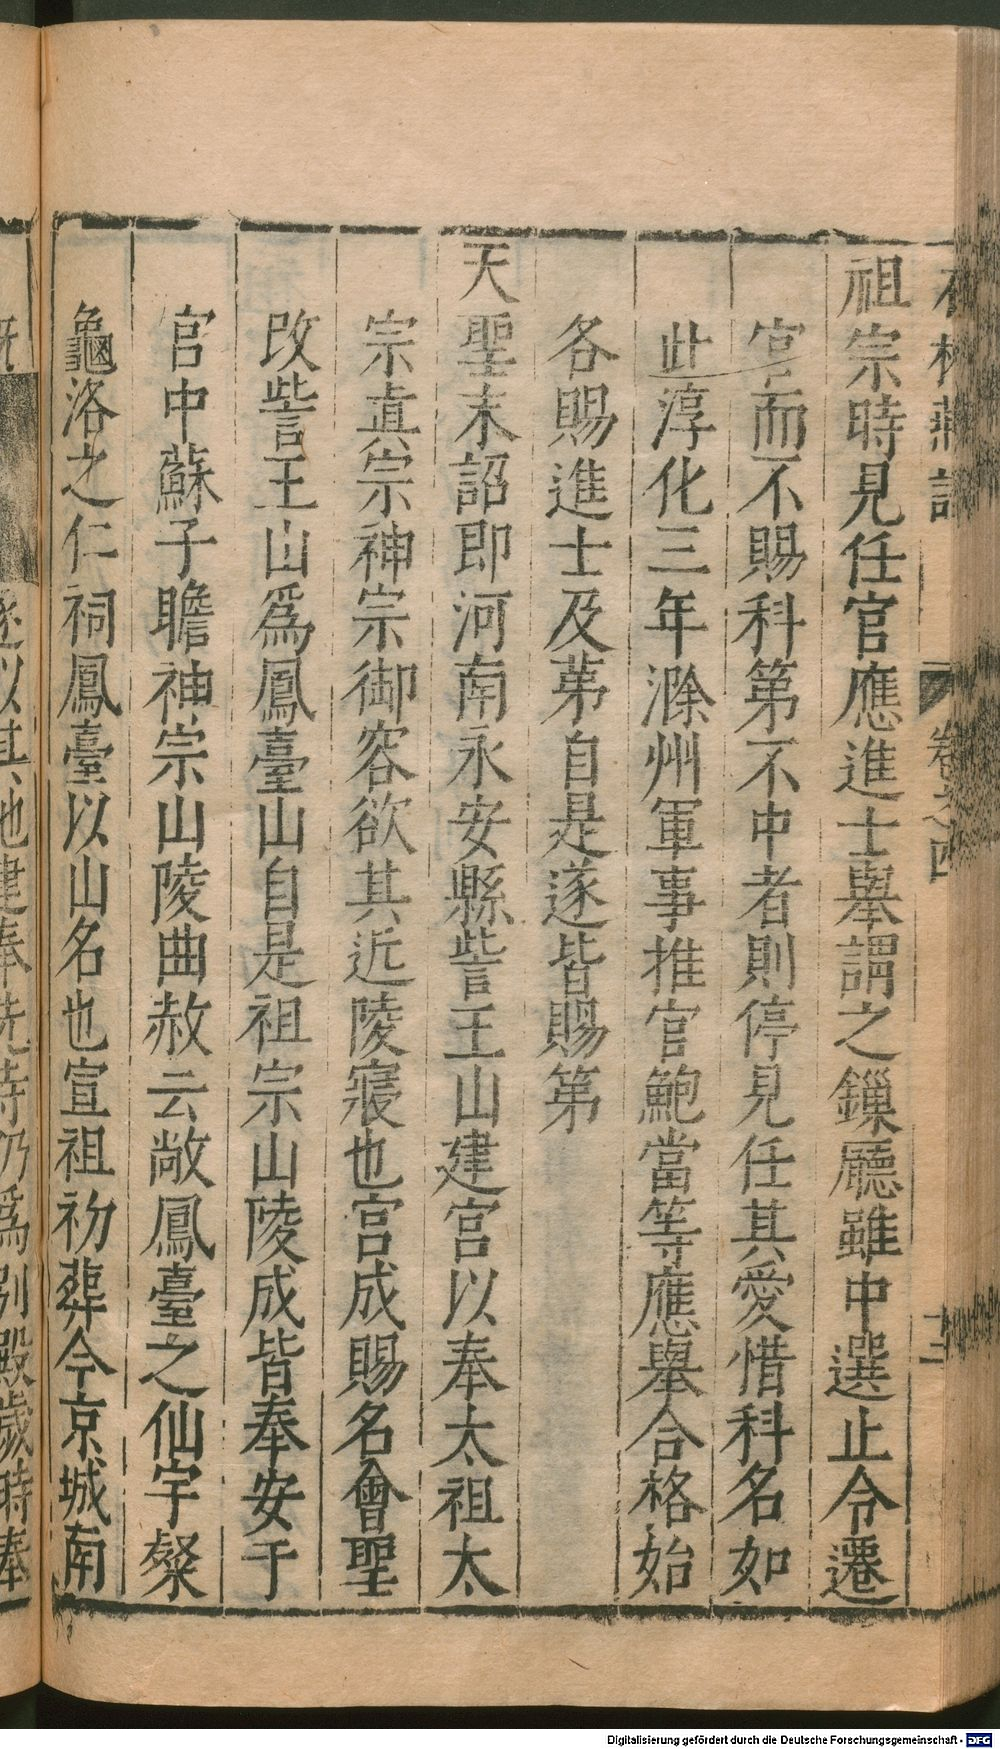 石林燕語
卷之四
祖宗時見任官應進士舉謂之鏁廳雖中選止令遷
官而不賜科第不中者則停見任其愛惜科名如
此淳化三年滁州軍事推官鮑當等應舉合格始
各賜進士及苐自是遂皆賜第
天聖末詔即河南永安縣訾王山建宮以奉太祖太
宗真宗神宗御容欲其近陵寢也宮成賜名會聖
改訾王山爲鳳臺山自是祖宗山陵成皆奉安于
官中蘇子瞻神宗山陵曲赦云敞鳳臺之仙宇粲
龜洛之仁祠鳳臺以山名也宣祖初葬今京城南
遂以其地建奉先寺仍爲別殿歲時奉
Digitalisierung gefördert durch die Deutsche Forschungsgemeinschaft - DFG